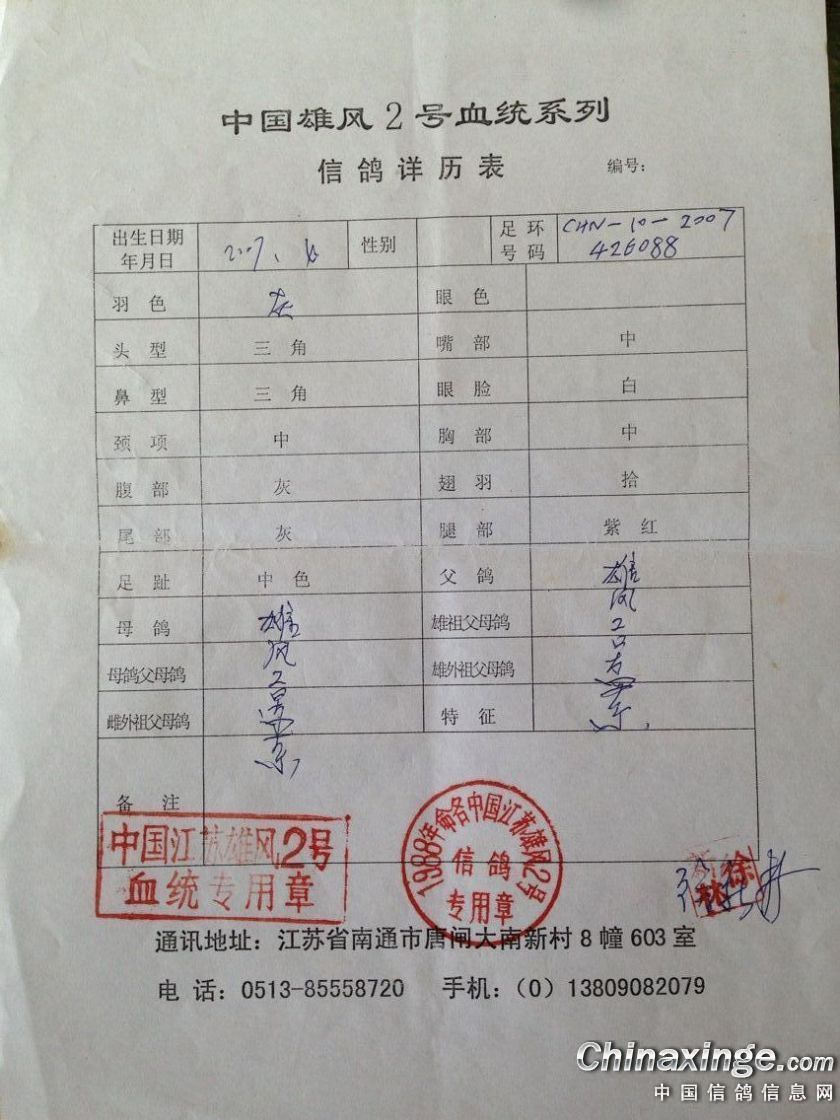 中国雄风2号血统系列
信鸽详历表 编号:
出生日期 年月日 2007. 性别 足环号码 CHN-10-2007 426088
羽色 灰 眼色
头型 三角 嘴部 中
鼻型 三角 眼脸 白
颈项 中 胸部 中
腹部 灰 翅羽 拾
尾部 灰 腿部 紫红
足趾 中色 父鸽 雄风2号
母鸽 雄风2号 雄祖父母鸽
母鸽父母鸽 雄外祖父母鸽
雌外祖父母鸽 特征
备注
中国江苏雄风2号
血统专用章
1988年命名中国江苏雄风2号
信鸽
专用章
徐
林
通讯地址：江苏省南通市唐闸大南新村8幢603室
电话：0513-85558720 手机：（0）13809082079
Chinaxinge.com
中国信鸽信息网